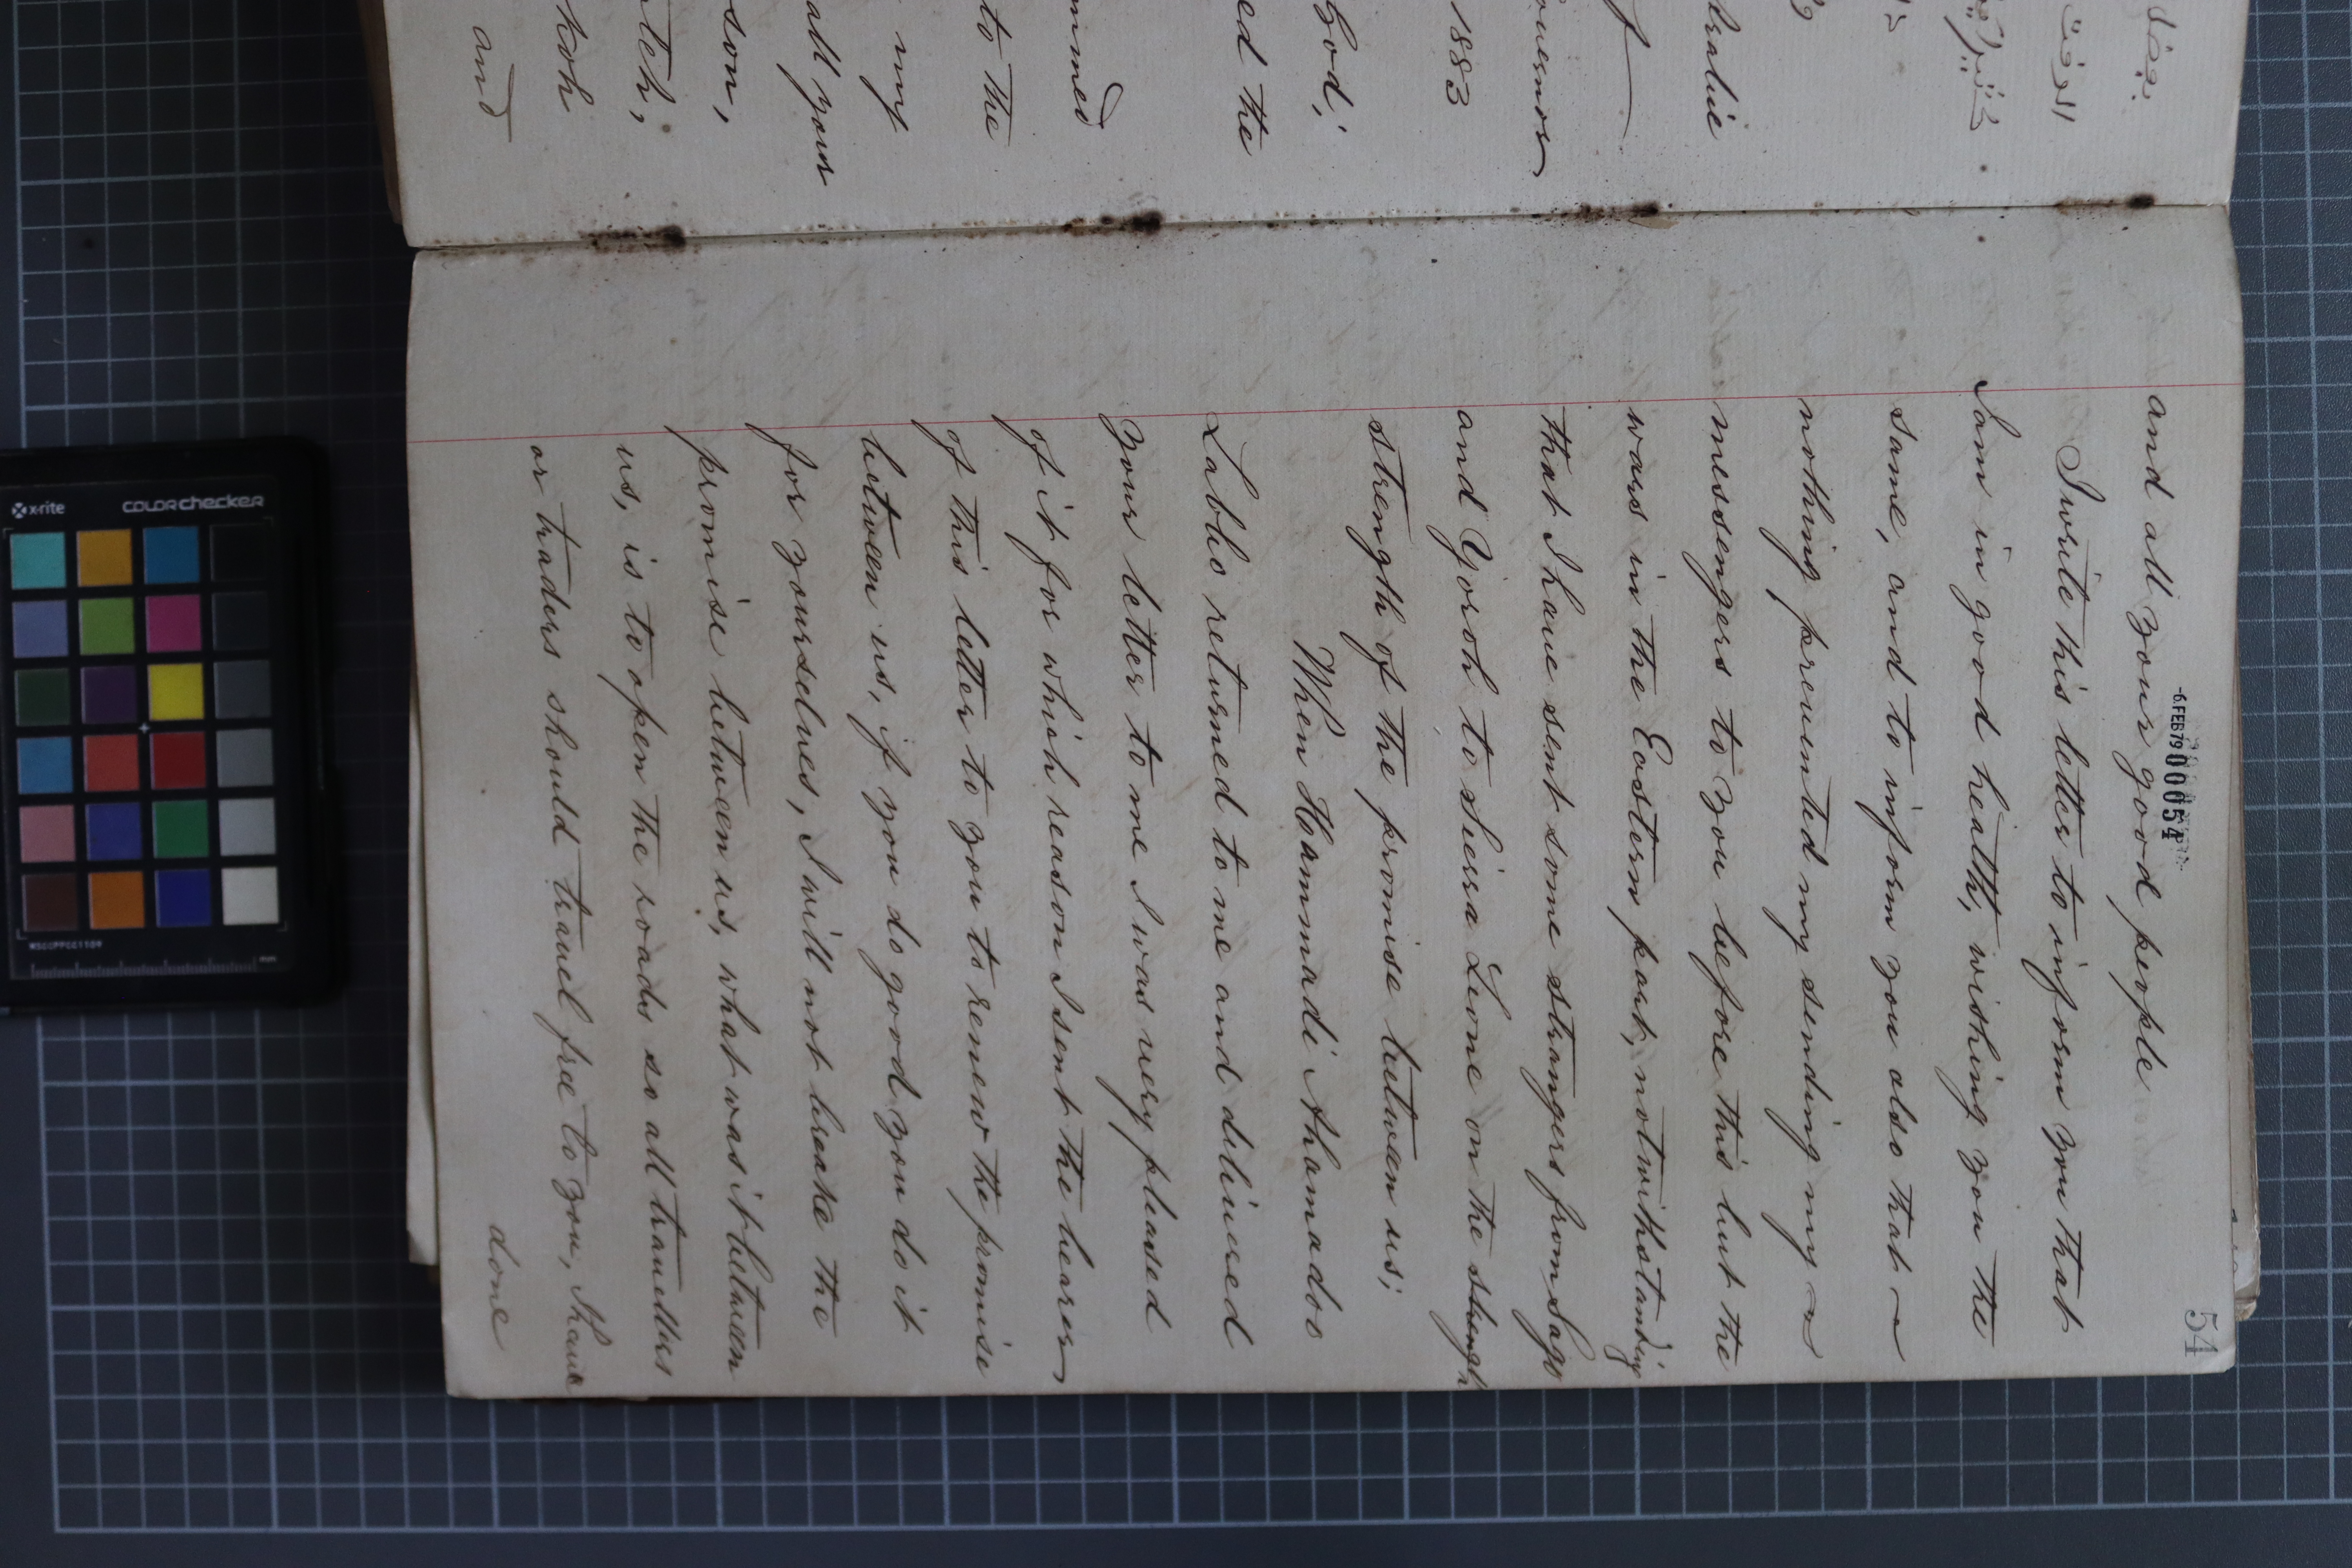 بعضا
الوقت
1883
ouernor
God;
ed the
mmed
to the
my
all your
son,
koh
and
54
-6 FEB 79 000054
and all your good people
I write this letter to inform you that
I am in good health, wishing you the
same, and to inform you also that
nothing preuented my sending my
messengers to you before this but the
wars in the Eastern part, notwithstanding
that I haue sent some strangers from Sago
and Yoroh to Sierra Leone on the strength
strength of the promise between us;
When Hammadi Ahamadoo
Labbo returned to me and deliuered
your letter to me I was uery pleased
of it for which reason I sent the bearer
of this letter to you to renew the promise
between us, if you do good you do it
for yourselues, I will not break the
promise between us, what was it between
us, is to open the roads so all trauellers
or traders should trauel free to you, I haue
done
x-rite
COLORchecker
MSCCPPCC1104
mm